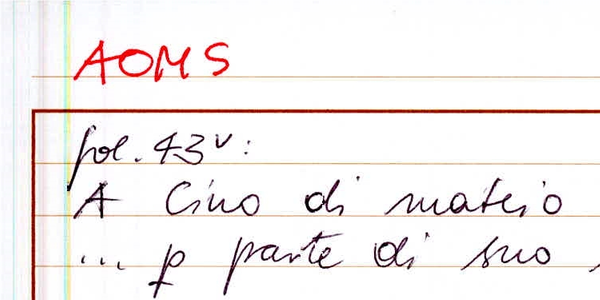 AOMS
fol. 43v:
A Cino di mateio
... p parte di suo